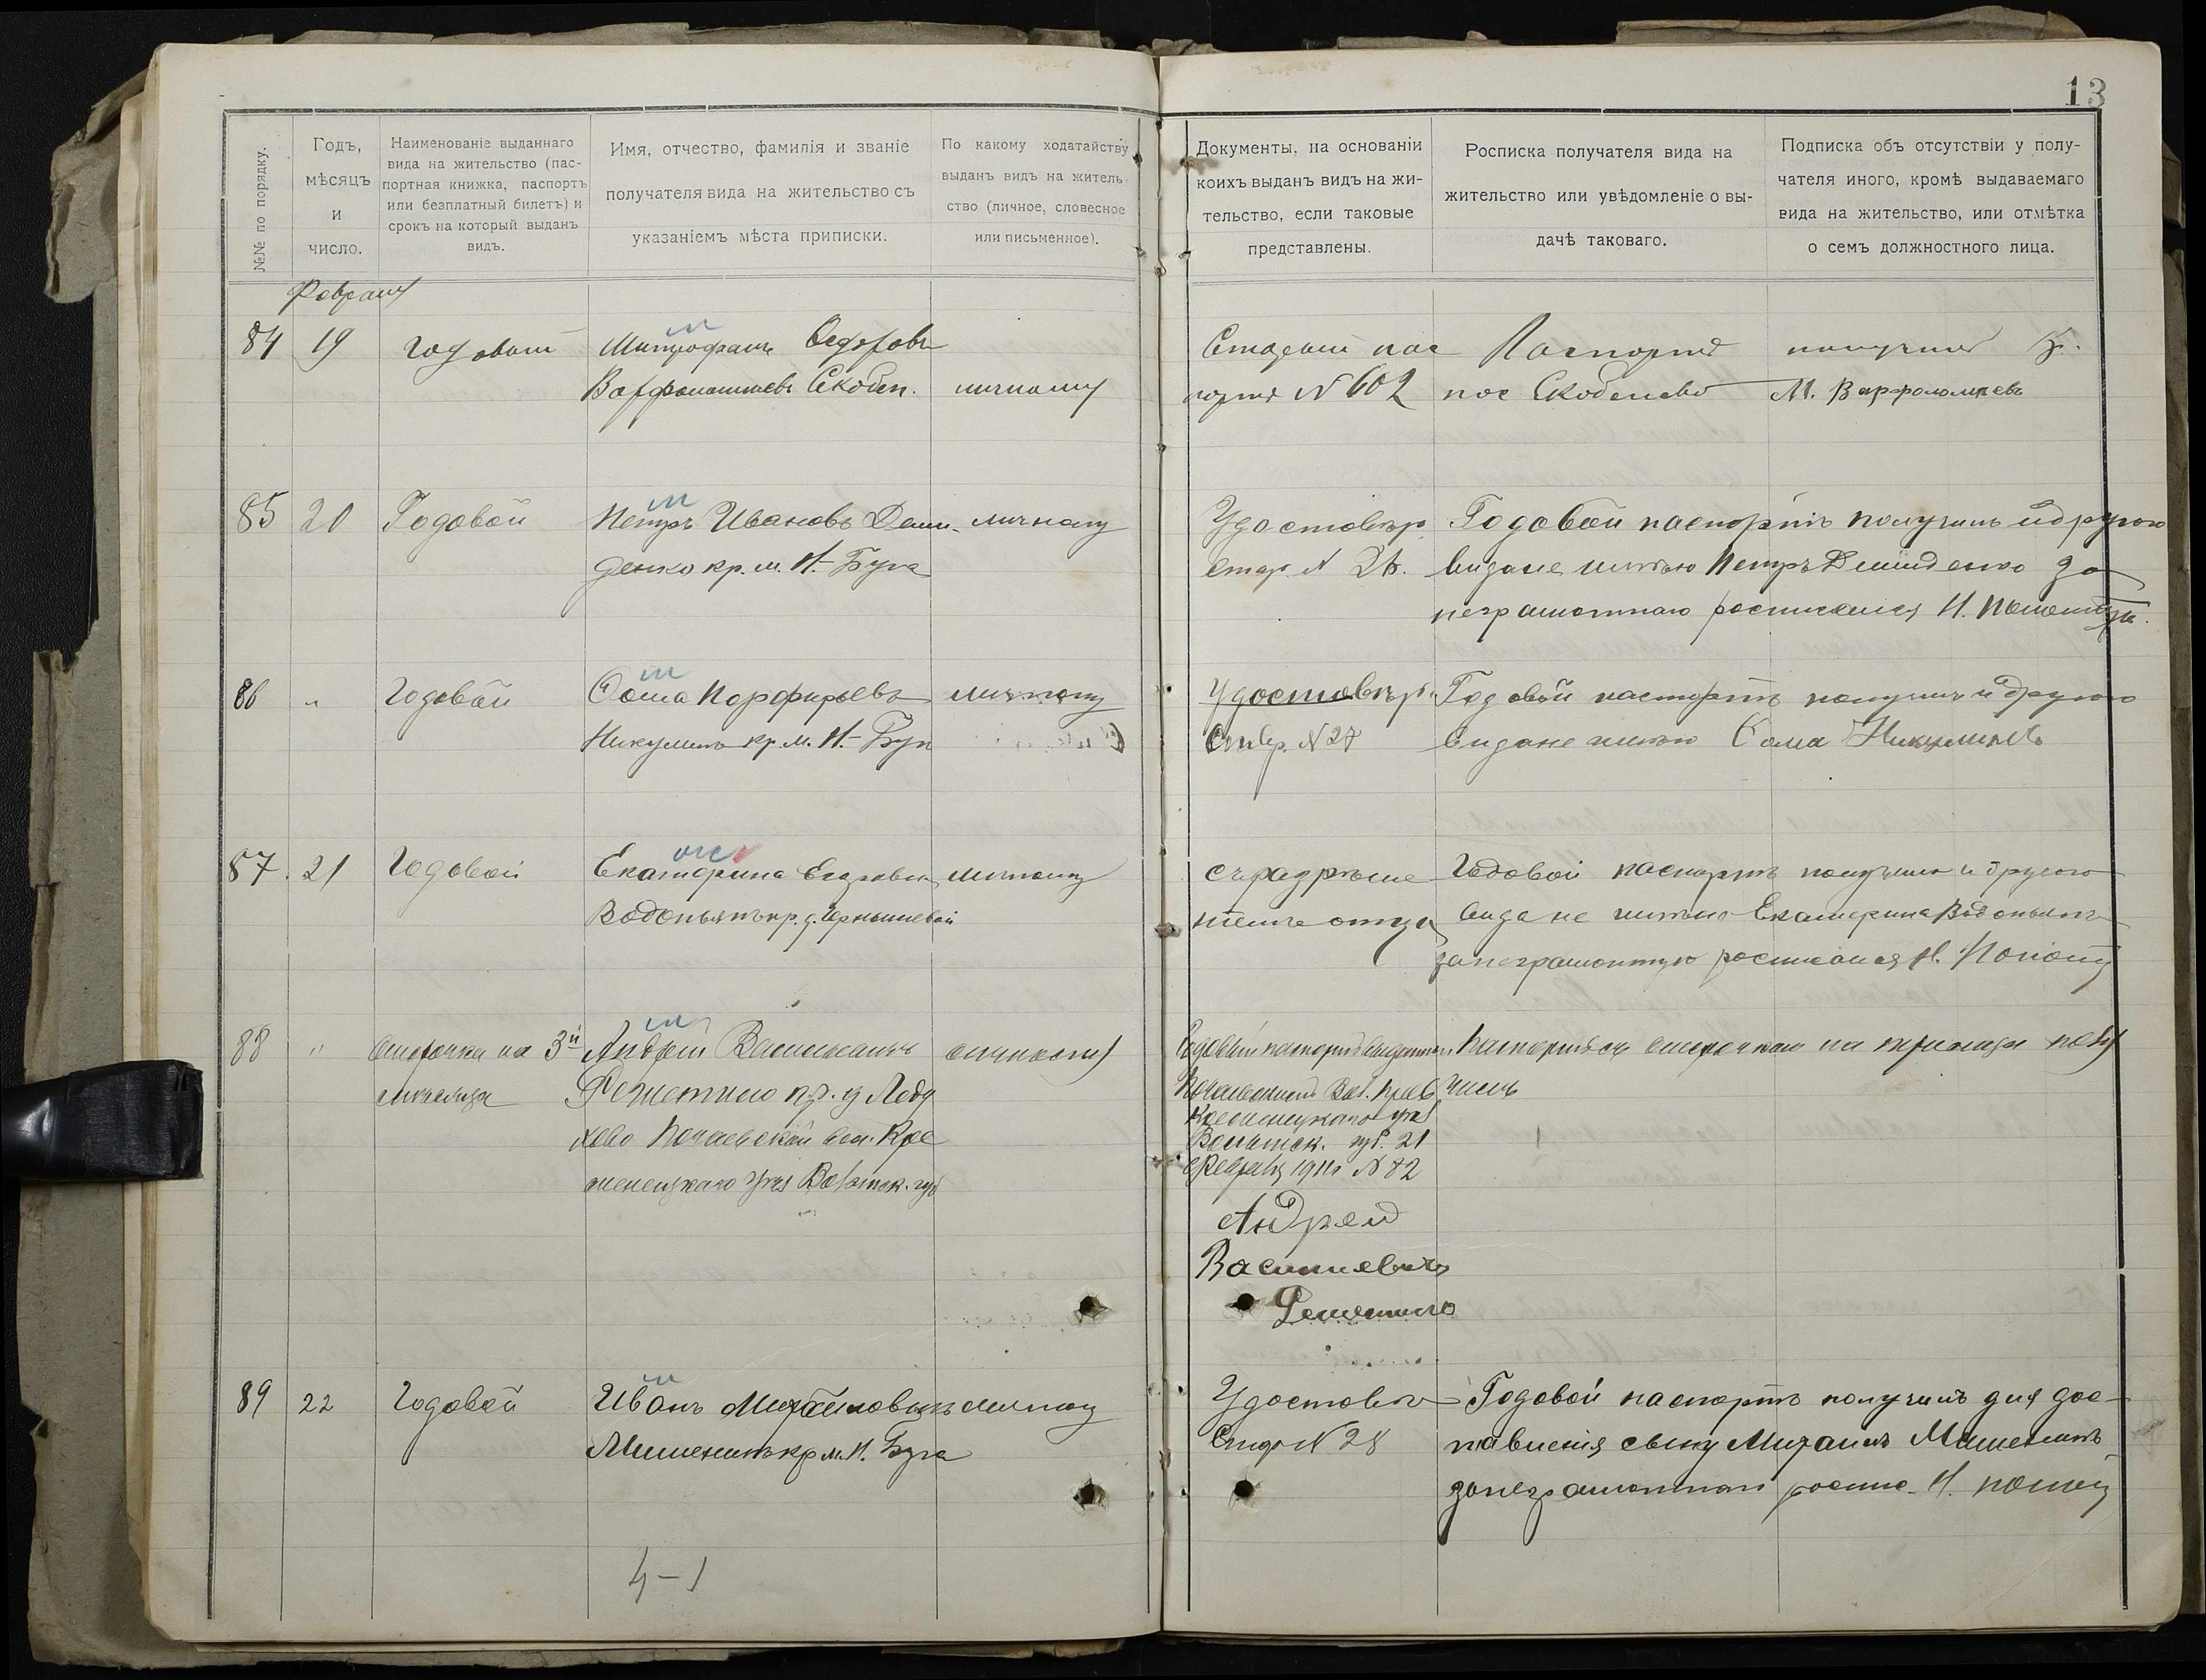 13
№№ по порядку.
Годъ,
мѣсяцъ
и
число.
Наименованіе выданнаго
вида на жительство (пас-
портная книжка, паспортъ
или безплатный билетъ) и
срокъ на который выданъ
видъ.
Имя, отчество, фамилія и званіе
получателя вида на жительство съ
указаніемъ мѣста приписки.
По какому ходатайству
выданъ видъ на житель-
ство (личное, словесное
или письменное).
Документы, на основаніи
коихъ выданъ видъ на жи-
тельство, если таковые
представлены.
Росписка получателя вида на
жительство или увѣдомленіе о вы-
дачѣ таковаго.
Подписка объ отсутствіи у полу-
чателя иного, кромѣ выдаваемаго
вида на жительство, или отмѣтка
о семъ должностного лица.
Февраля
84 19 годовой Митрофанъ Федоровъ
Варфоломеевъ Скобел. личному
Старый пас
портъ N 602
Паспортъ получилъ
пос Скобелево М. Варфоломѣевъ
85 20 Годовой Петръ Ивановъ Деми- личному
денко кр. м. Н.-Буга
Удостовѣр.
Стар. N 26.
Годовой паспортъ получилъ и другого
вида не имѣю Петръ Демиденко за
неграмотнаго росписался Н.
86 " Годовой Фома Порфирьевъ личному
Никулинъ кр. м. Н.-Буга
Удостовѣр.
Стар. N 27
Годовой паспортъ получилъ и другого
вида не имѣю Фома Никулинъ
87. 21 Годовой Екатерина Егоровна личному
Водопьянъ кр. д. Чернышевой
съ разрѣше
нiемъ отца
Годовой паспортъ получила и другого
вида не имѣю Екатерина Водопьянъ
за неграмотную росписался Н.
88 " отсрочка на 3й
мѣсяца
Андрей Васильевъ личному
Решетило кр. д. Ледо
хово Почаевской вол. Кре
менецкаго уѣз Волынск. губ
Годовый паспортъ выданный
Почаевскимъ Вол. Прав
Кременецкаго уѣз
Волынск. губ. 21
Февраля 1911г N 82
Паспортъ съ отсрочкою на три мѣсяца полу
чилъ
Андрей
Василиевичъ
Решетило
89 22 Годовой Иванъ Михайловичъ личному
Мишенинъ кр м. Н. Буга
Удостовѣр
Стар N 28
Годовой паспортъ получилъ для дос-
тавленія сыну Михаилъ Мишенинъ
за неграмотнаго роспис. Н.
4-1